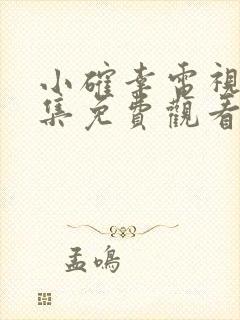 小確幸電視
集免費觀看
孟鳴